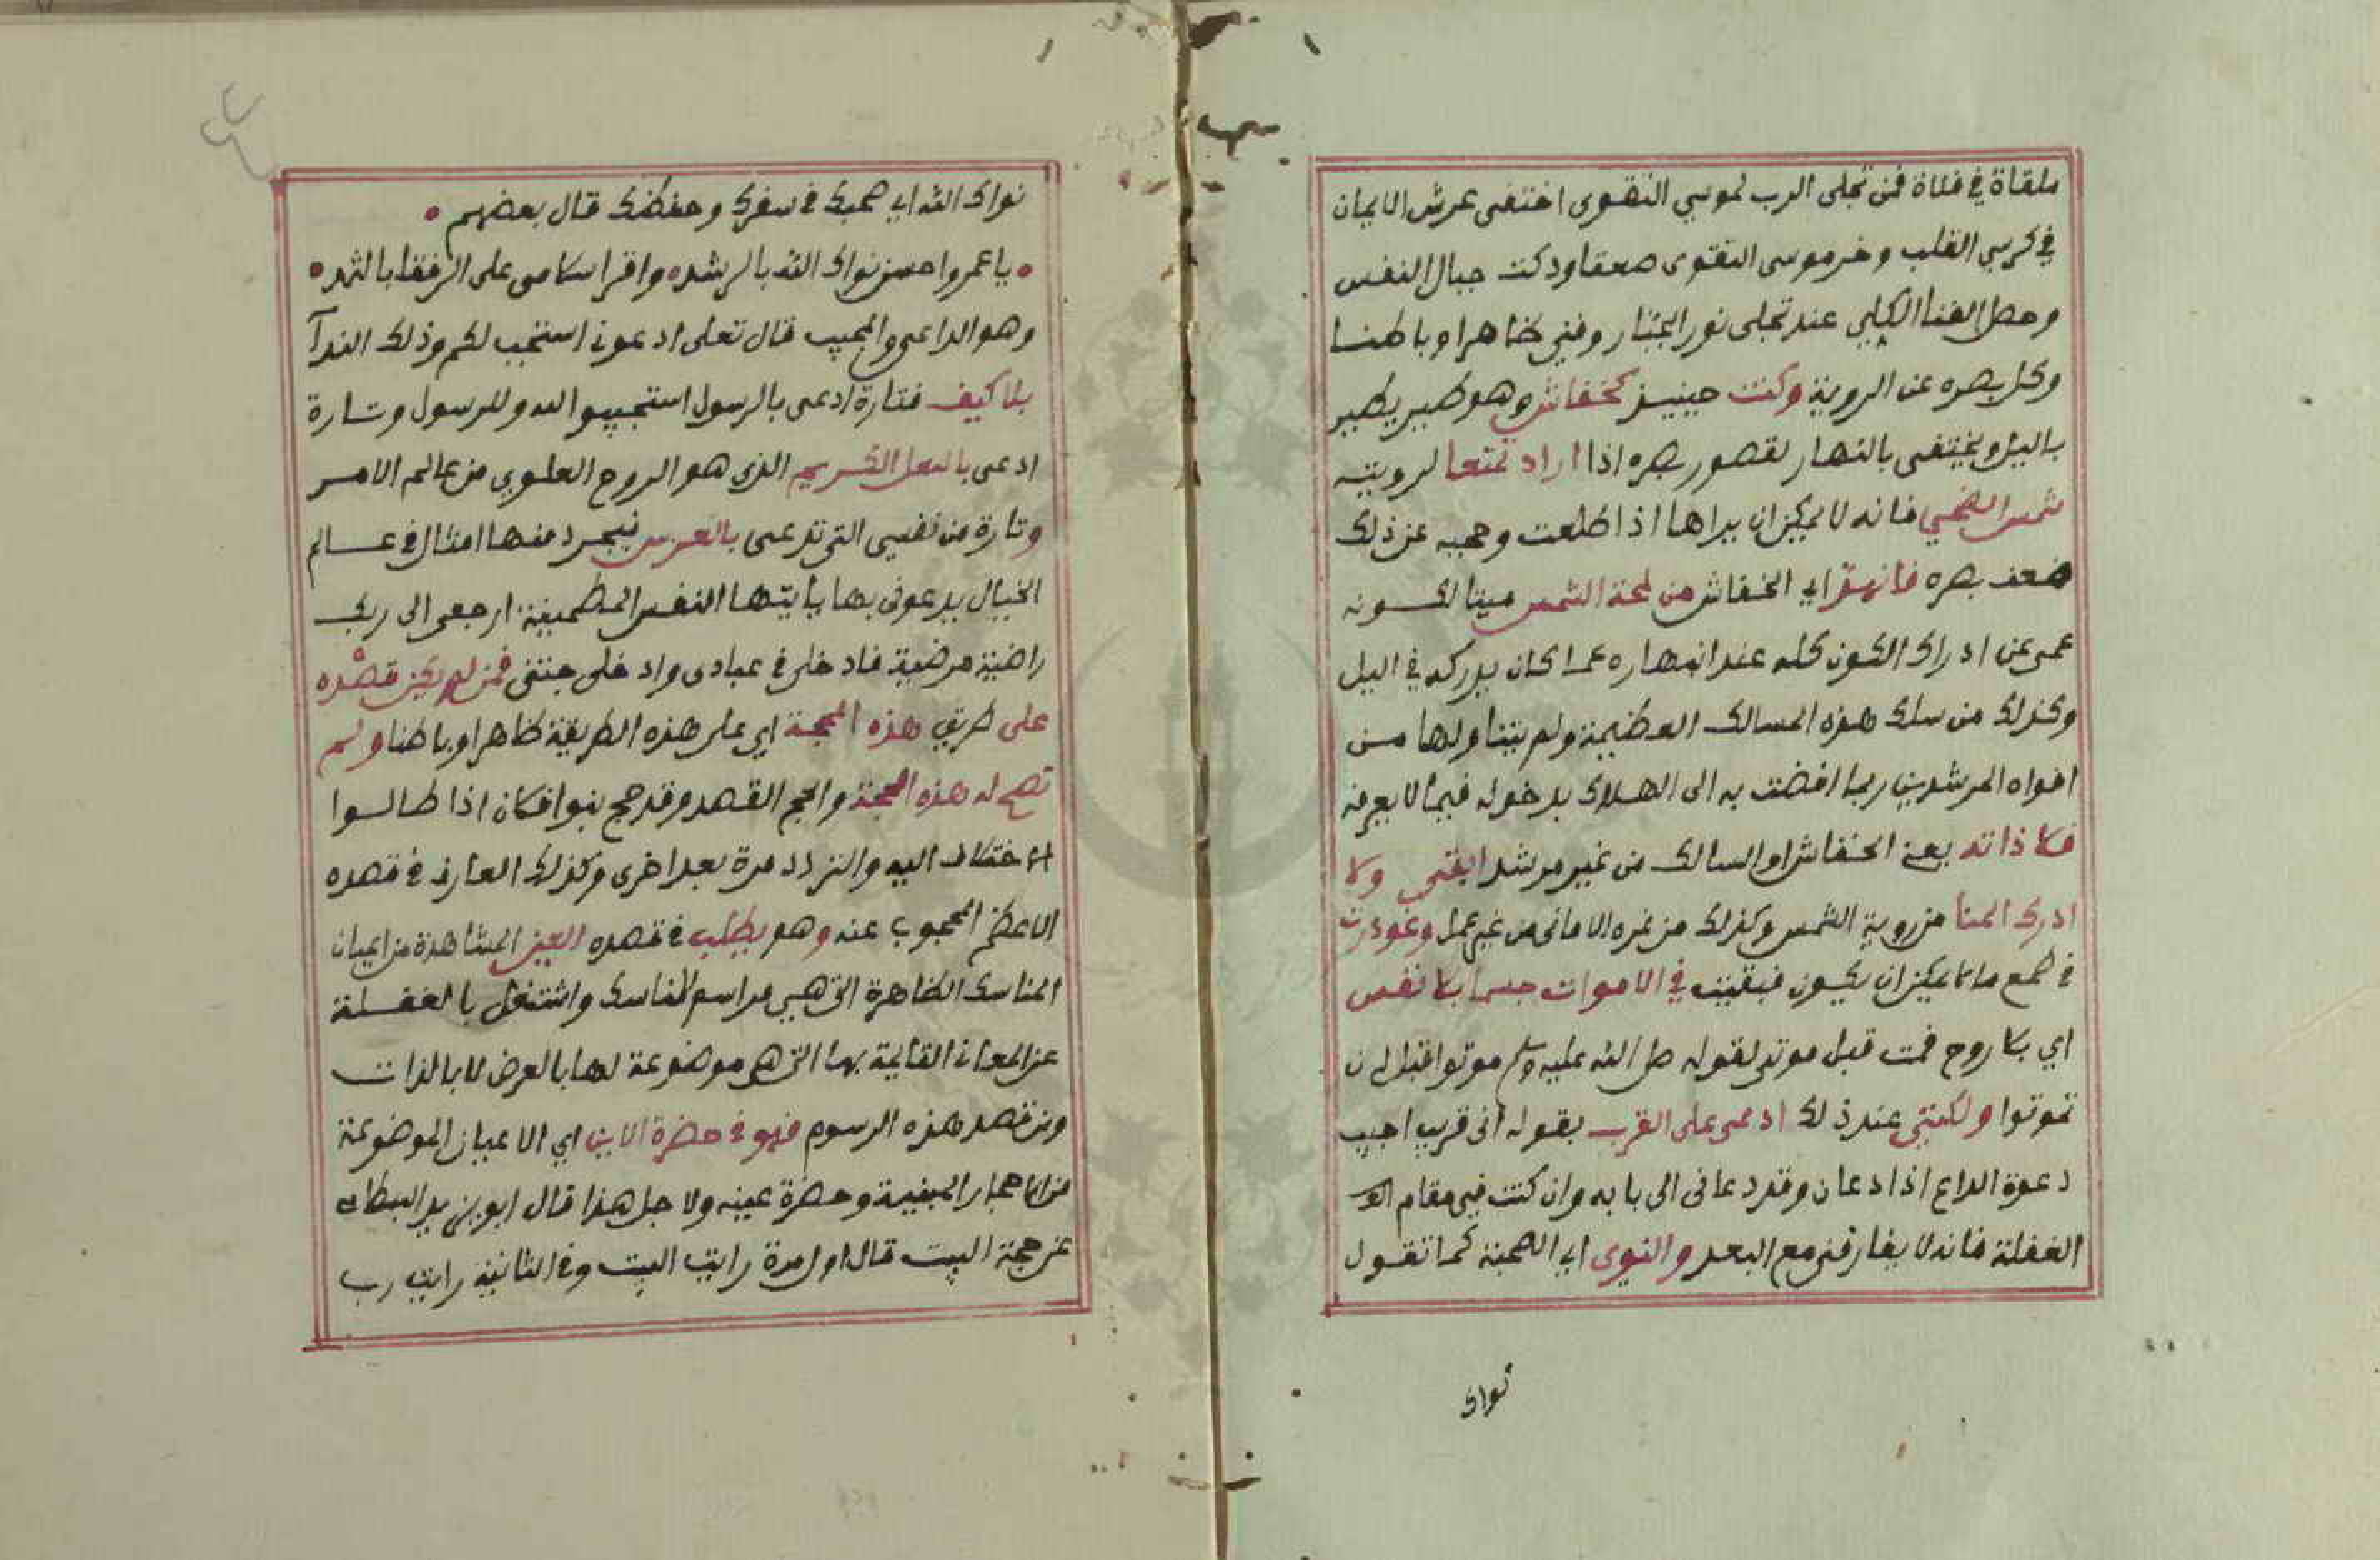 ملقاة في فلاة فمن تجلى الرب لموسي التقوى اختفى عرش الايمان
في كرسي القلب وخر موسى التقوى صعقا ودكت جبال النفس
وحصل الفنا الكلي عند تجلى نور الجبار وفني ظاهرا وباطنا
وكل بصره عن الروية وكنت حينيذ كخفاش وهو طير يطير
باليل ويختفى بالنهار لقصور بصره اذا اراد تمتعا لرويته
شمس الضحي فانه لا يمكن ان يراها اذا طلعت وحجبه عن ذلك
ضعف بصره فانهد اي الخفاش من لمحة الشمس ميتا لكونه
عمى عن ادراك الكون كله عند انبهاره عما كان يدركه في اليل
وكذلك من سلك هذه المسالك العظيمة ولم يتناولها من
افواه المرشدين ربما افضت به الى الهلاك بدخوله فيما لا يعرفه
فلا ذاته يعنى الخفاش او السالك من غير مرشد ابقتى ولا
ادرك المنا من روية الشمس وكذلك من غره الامانى من غير عمل وغودرت
في طمع ما لا يمكن ان يكون فبقيت في الاموات جسما بلا نفس
اي بلا روح فمت قبل موتى لقوله صلى الله عليه وسلم موتوا قبل ان
تموتوا ولكنني عند ذلك ادعى على القرب بقوله انى قريب اجيب
دعوة الداع اذا دعان وقد دعانى الى بابه وان كنت في مقام
الغفلة فانه لا يفارقنى مع البعد والنوى اى الصحبة كما تقول
نواك
نواك الله اي صحبك في سفرك وحفظك قال بعضهم
يا عمرو احسن نواك الله بالرشد واقرا سلامى على الرفقا بالثمد
وهو الداعى والمجيب قال تعلى ادعونى استجب لكم وذلك الندآ
بلا كيف فتارة ادعى بالرسول استجيبوا لله وللرسول وتارة
ادعى بالعقل الكريم الذى هو الروح العلوي من عالم الامر
وتارة من نفسي التى تدعى بالعرس فيجرد منها امثال في عالم
الخيال يدعونى بها يا أيتها النفس المطمينة ارجعى الى ربك
راضية مرضية فادخلى في عبادى وادخلى جنتى فمن لم يكن قصده
على طريق هذه المحجة اي على هذه الطريقة ظاهرا وباطنا ولم
تصح له هذه الحجة والحج القصد وقد حج بنوا فلان اذا طالوا
الاختلاف اليه والتردد مرة بعد اخرى وكذلك العارف في قصده
الاعظم المحجوب عنه وهو يطلب في قصده العين المشاهدة من اعيان
المناسك الظاهرة التى هي مراسم المناسك واشتغل بالغفلة
عن المعانى القايمة بها التى هو موضوعة لها بالعرض لا بالذات
ومن قصد هذه الرسوم فهو في حضرة الاين اي الاعيان الموضوعة
من الاحجار المبنية وحضرة عينه ولاجل هذا قال ابو يزيد البسطامى
عن حجة البيت قال اول مرة رايت البيت وفى الثانية رايت رب